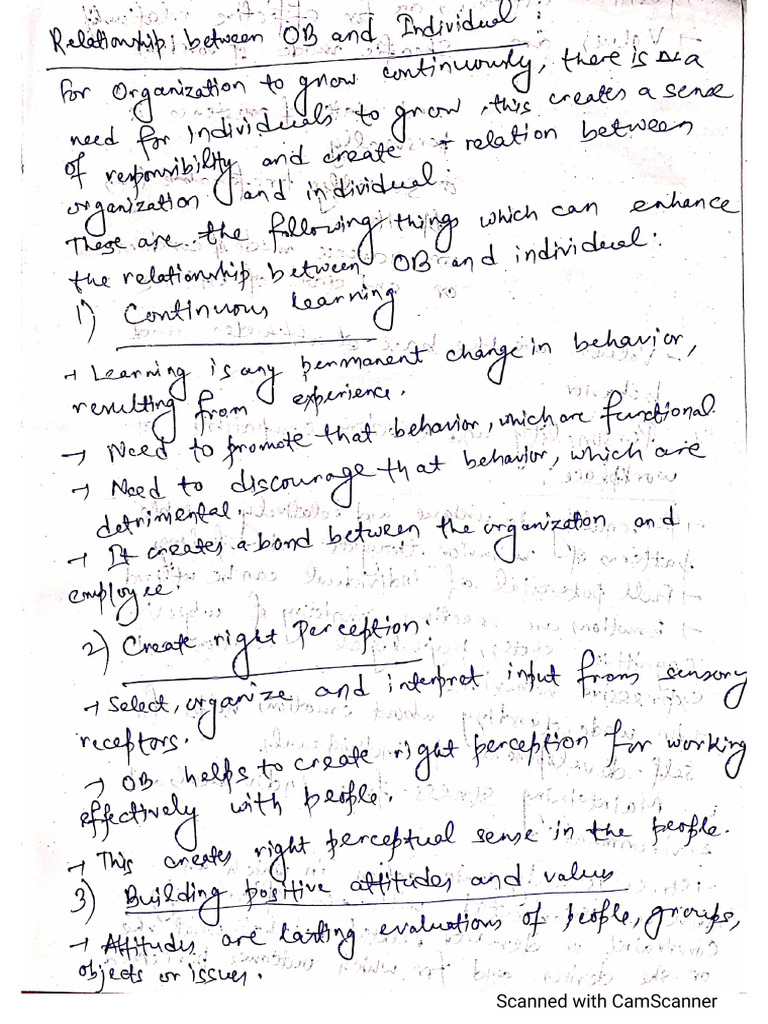 Relationship between OB and Individual:
for Organization to grow continuously, there is a
need for individuals to grow, this creates a sense
of responsibility and create relation between
organization and individual.
These are the following things which can enhance
the relationship between OB and individual:
1) Continuous learning
→ Learning is any permanent change in behavior,
resulting from experience.
→ Need to promote that behavior, which are functional.
→ Need to discourage that behavior, which are
detrimental.
→ It creates a bond between the organization and
employee.
2) Create right Perception:
→ Select, organize and interpret input from sensory
receptors.
→ OB helps to create right perception for working
effectively with people.
→ This creates right perceptual sense in the people.
3) Building positive attitudes and values
→ Attitudes are lasting evaluations of people, groups,
objects or issues.
Scanned with CamScanner